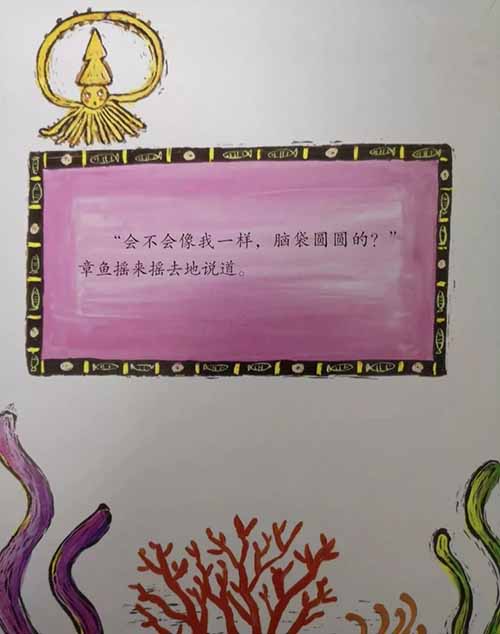 “会不会像我一样，脑袋圆圆的？”
章鱼摇来摇去地说道。